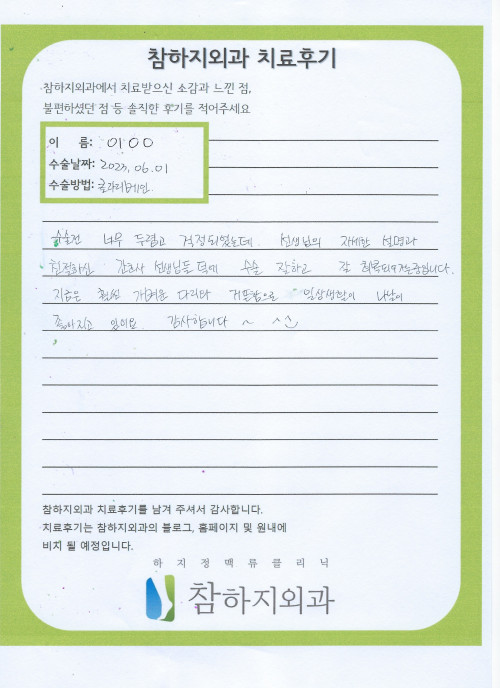 참하지외과 치료후기
참하지외과에서 치료받으신 소감과 느낀 점,
불편하셨던 점 등 솔직한 후기를 적어주세요
이 름: 이OO
수술날짜: 2023. 06. 01
수술방법: 클라리베인
수술전 너무 두렵고 걱정되었는데, 선생님의 자세한 설명과
친절하신 간호사 선생님들 덕에 수술 잘하고 잘 회복되어가는중입니다.
지금은 훨씬 가벼운 다리와 가뿐함으로 일상생활이 나날이
좋아지고 있어요. 감사합니다 ~ ^^
참하지외과 치료후기를 남겨 주셔서 감사합니다.
치료후기는 참하지외과의 블로그, 홈페이지 및 원내에
비치 될 예정입니다.
하지정맥류클리닉
참하지외과